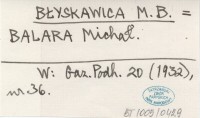 BŁYSKAWICA M.B. =
BALARA Michał.
W: Gaz. Podh. 20 (1932),
nr. 36.